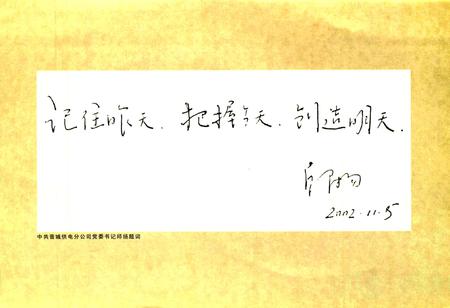 记住昨天、把握今天、创造明天.
师扬
2002.11.5
中共晋城供电分公司党委书记师扬题词